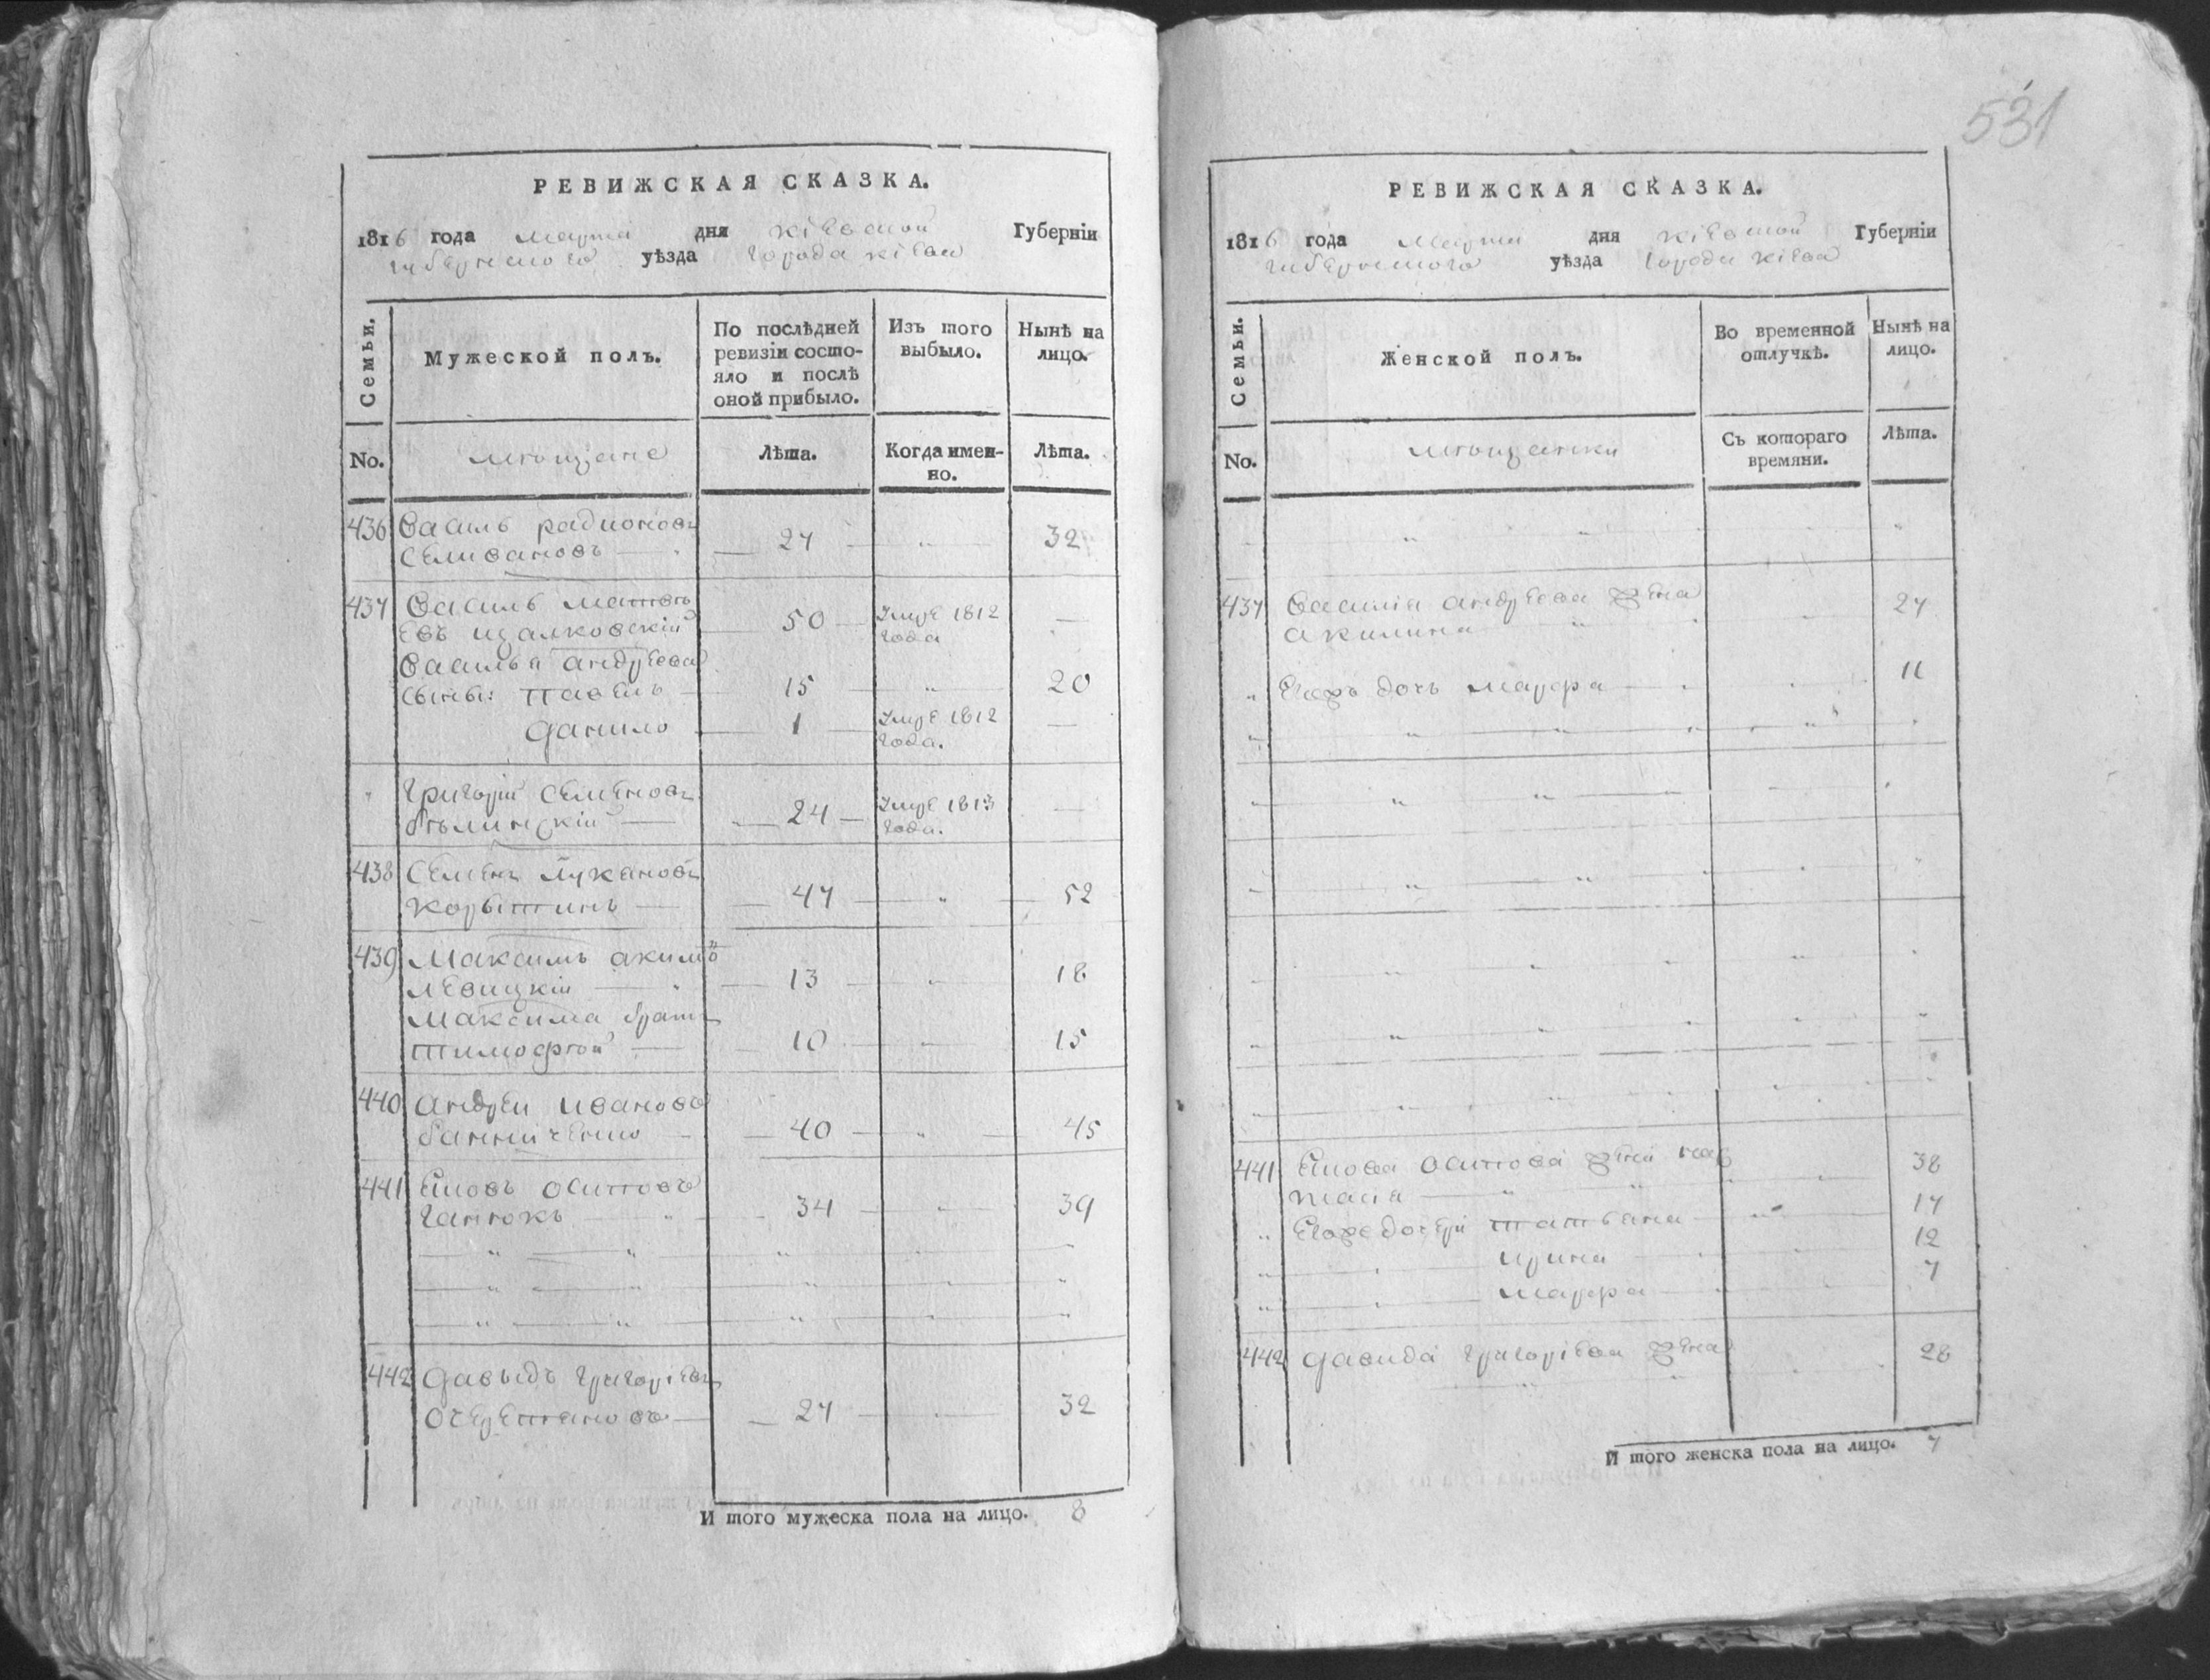 531
РЕВИЖСКАЯ СКАЗКА.
1816 года Марта дня Кіевской Губерніи
Губернского уѣзда Города Кіева
Семьи.
Мужеской полъ.
По послѣдней
ревизіи состо-
яло и послѣ
оной прибыло.
Изъ того
выбыло.
Нынѣ на
лицо.
No.
мещане
Лѣта.
Когда имен-
но.
Лѣта.
436 Василь радионовъ
Селивановъ 27 32
437
евъ 50 Умре 1812
года
Василья андреева
сыны: Павелъ 15 20
Данило 1 Умре 1812
года.
Григорій Семеновъ
бѣлинскій 24 Умре 1813
года.
438 Семенъ Лукановъ
Корытинъ 47 52
439 Максимъ акимо
Левицкій 13 18
Максима братъ
Тимофей 10 15
440 андрей ивановъ
40 45
441 осиповъ
34 39
442 Давыдъ григоріевъ
Очеретановъ 27 32
И того мужеска пола на лицо. 8
РЕВИЖСКАЯ СКАЗКА.
1816 года Марта дня Кіевской Губерніи
Губернского уѣзда Города Кіева
Семьи.
Женской полъ.
Во временной
отлучкѣ.
Нынѣ на
лицо.
No.
мещанки
Съ котораго
времяни.
Лѣта.
437 Василія андреева жена
акилина 27
Егоръ дочь Мавра 11
441 осипова жена
38
дочери татьяна 17
ирина 12
Мавра 7
442 Давида григоріева жена 28
И того женска пола на лицо. 7